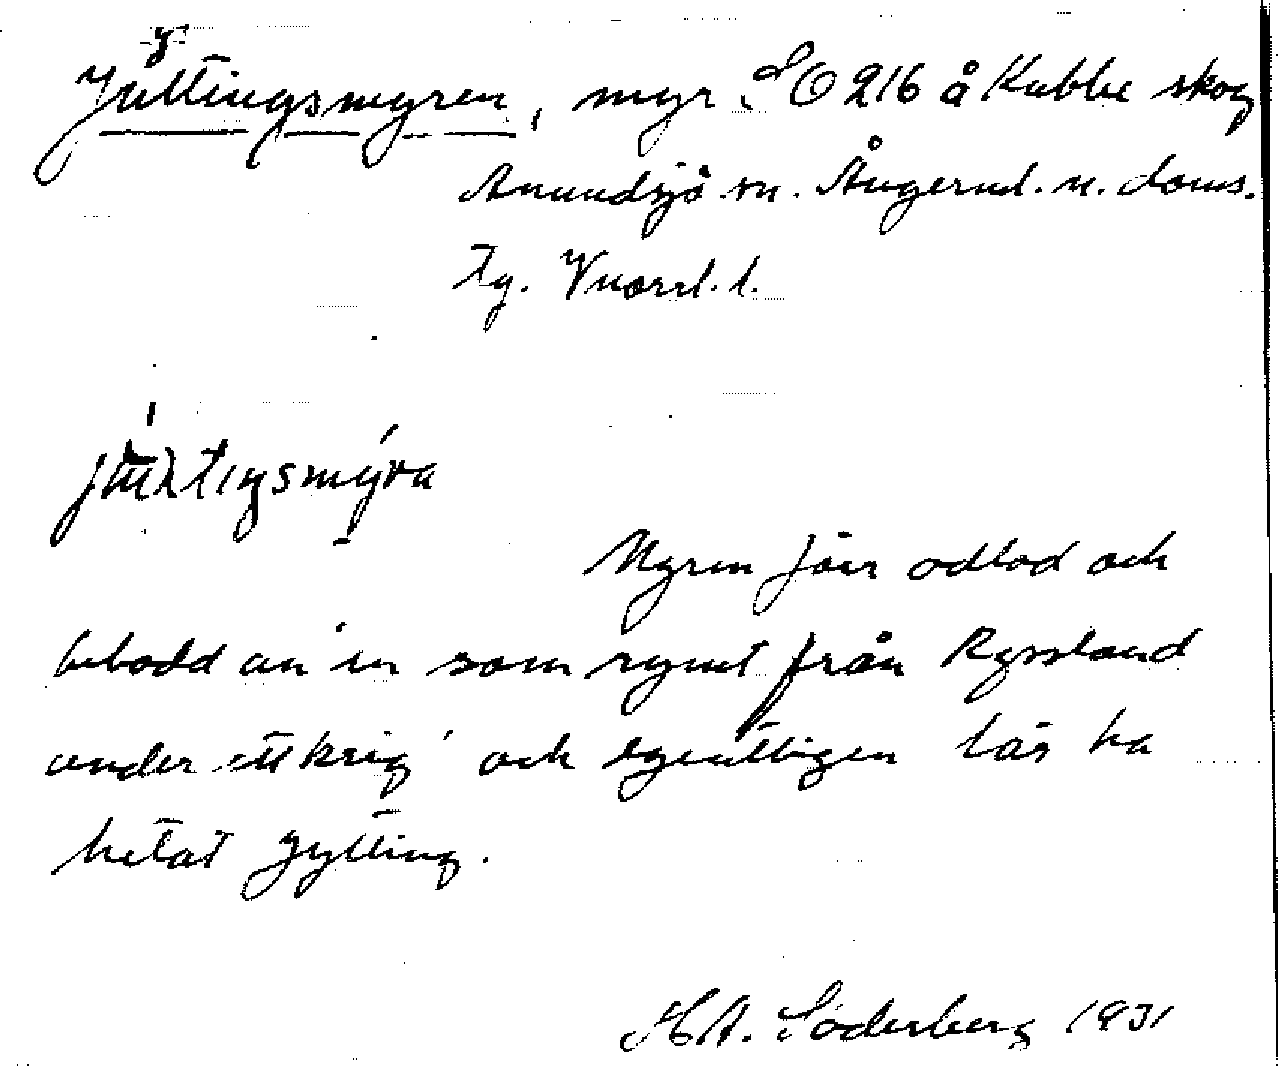 Jyttingsmyren, myr SO 216 å Kubbe skog
Anundsjö sn. Ångerml. n. doms.
Tg. Vnorrl. l.
Myren förr odlad och
bebodd av en som rymt från Ryssland
under ett krig och egentligen lär ha
hetat Jytting.
H.A. Söderberg 1931